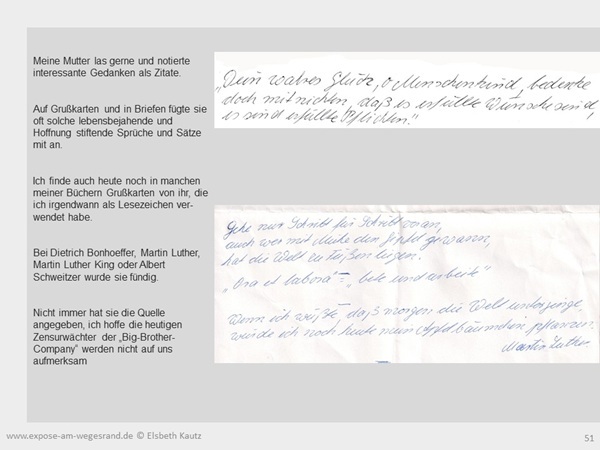 Meine Mutter las gerne und notierte
interessante Gedanken als Zitate.
Auf Grußkarten und in Briefen fügte sie
oft solche lebensbejahende und
Hoffnung stiftende Sprüche und Sätze
mit an.
Ich finde auch heute noch in manchen
meiner Büchern Grußkarten von ihr, die
ich irgendwann als Lesezeichen ver-
wendet habe.
Bei Dietrich Bonhoeffer, Martin Luther,
Martin Luther King oder Albert
Schweitzer wurde sie fündig.
Nicht immer hat sie die Quelle
angegeben, ich hoffe die heutigen
Zensurwächter der „Big-Brother-
Company“ werden nicht auf uns
aufmerksam
„Dein wahres Glück, o Menschenkind, bedenke
doch mitnichten, daß es erfüllte Wünsche sind,
es sind erfüllte Pflichten."
Gehe nur Schritt für Schritt voran,
auch wer mit Mühe den Gipfel gewann,
hat die Welt zu Füßen liegen.
„Ora et labora" – „bete und arbeite"
Wenn ich wüßte daß morgen die Welt unterginge,
würde ich noch heute mein Apfelbäumchen pflanzen.
Martin Luther
www.expose-am-wegesrand.de © Elsbeth Kautz
51